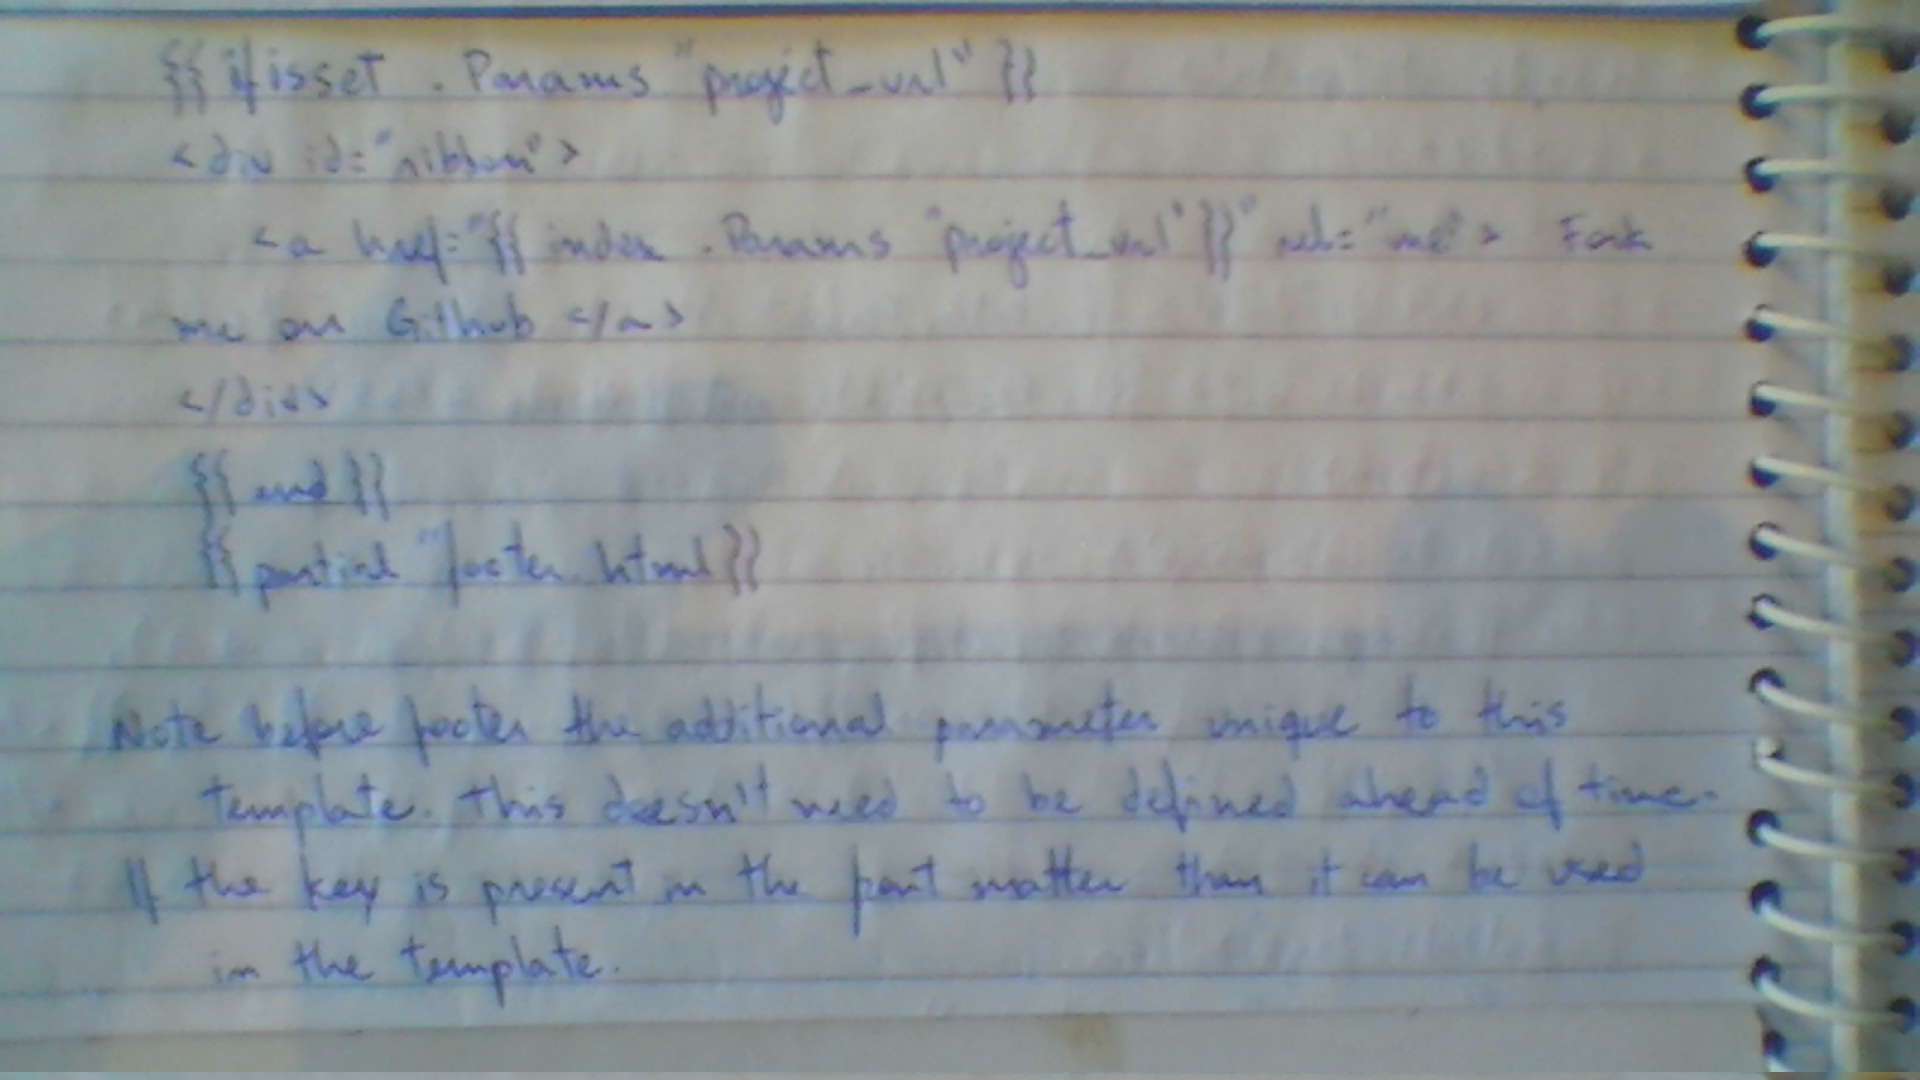 {{ if isset . Params "project_url" }}
<div id="ribbon">
<a href="{{ index . Params "project_url" }}" rel="me"> Fork
me on Github </a>
</div>
{{ end }}
{{ partial "footer.html }}
Note before footer the additional parameter unique to this
template. This doesn't need to be defined ahead of time.
If the key is present in the font matter than it can be used
in the template.